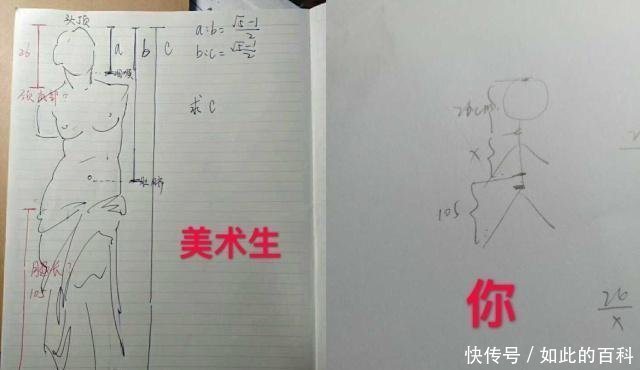 头顶
26
a
b
c
a:b=(√5-1)/2
b:c=(√5-1)/2
咽喉
求c
肚脐
105
美术生
26cm
x
105
你
26/x
快传号/如此的百科